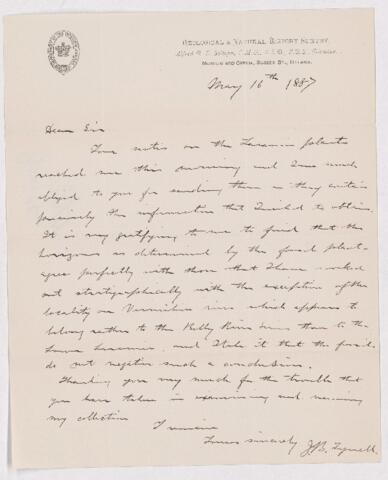 GEOLOGICAL & NATURAL HISTORY SURVEY,
Alfred R. C. Selwyn, C.M.G., L.L.D., F.R.S., Director.
MUSEUM AND OFFICE, SUSSEX ST., OTTAWA.
May 16th 1887
Dear Sir
Your notes on the Laramie plants
reached me this morning and I am much
obliged to you for sending them as they contain
precisely the information that I wished to obtain.
It is very gratifying to me to find that the
horizons as determined by the fossil plants
agree perfectly with those that I have worked
out stratigraphically with the exception of the
locality on Vermilion river which appears to
belong rather to the Belly River series than to the
Lower Laramie, and I take it that the fossils
do not negative such a conclusion.
Thanking you very much for the trouble that
you have taken in examining and naming
my collection
I remain
Yours sincerely J.B. Tyrrell.